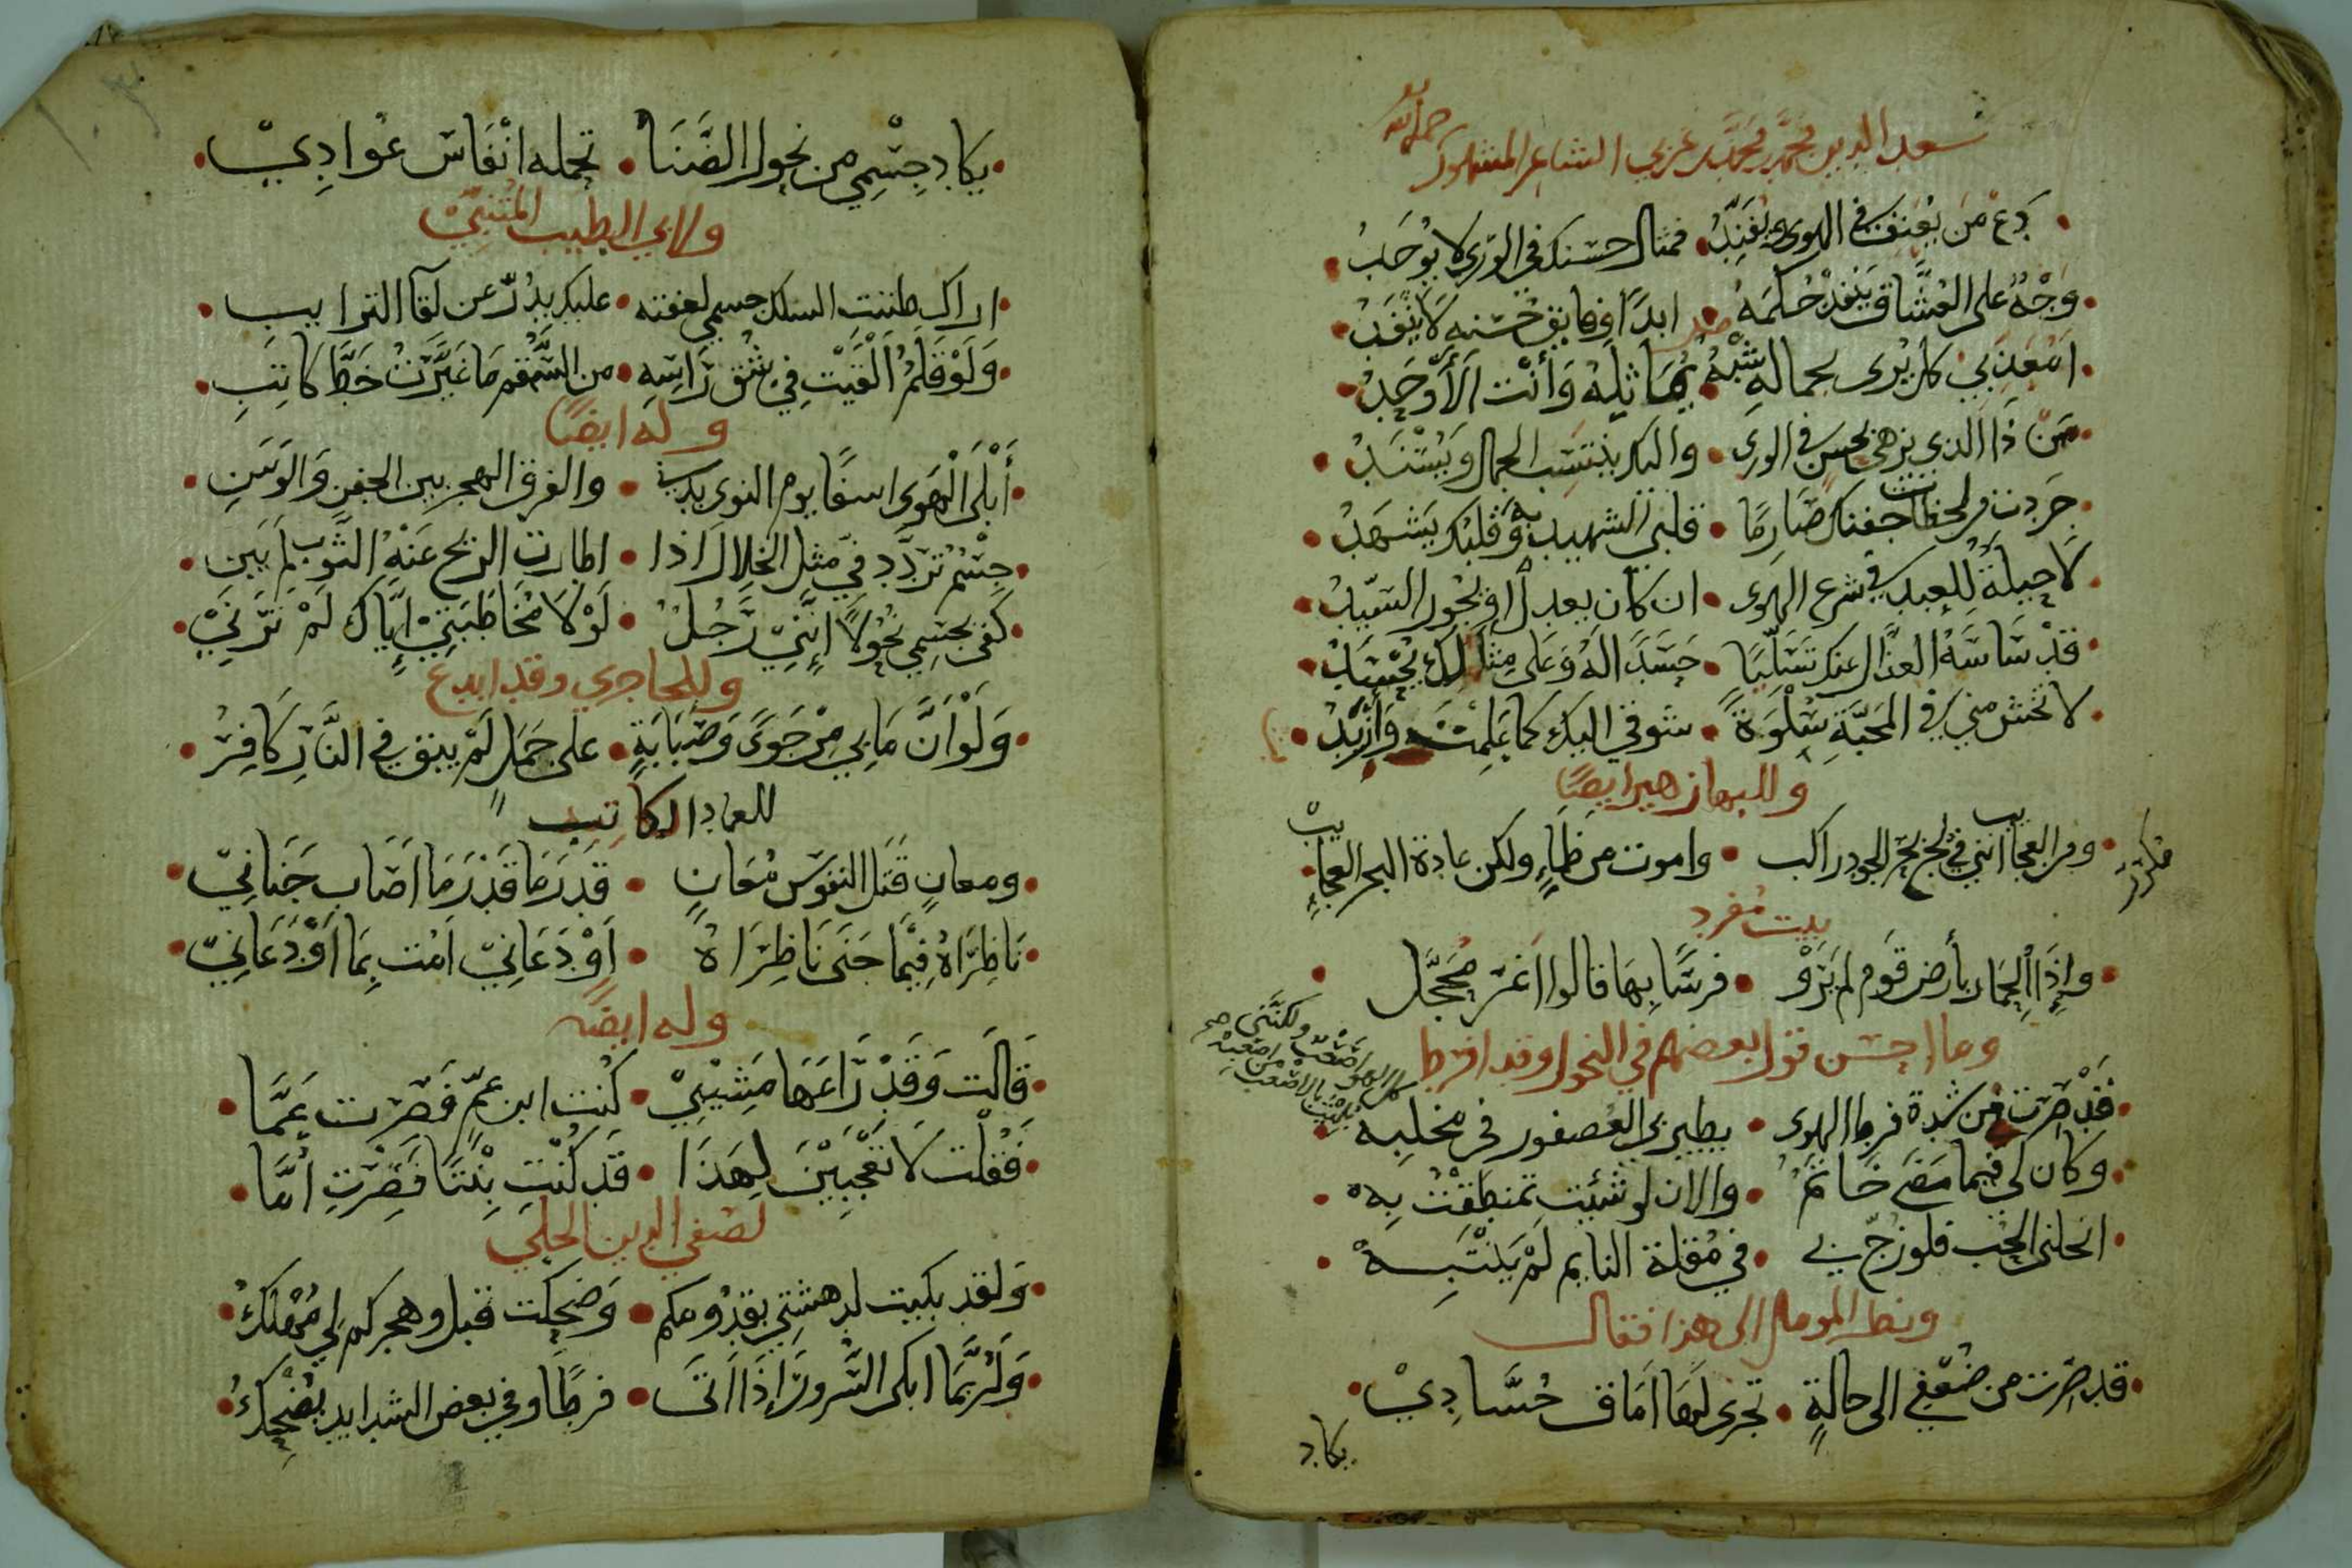 سعد الدين محمد بن محمد بن عربي الشاعر المشهور رحمه الله
دَعْ مَن يُعَنِّف في الهوى ويُفَنِّدُ • فمثال حسنك في الورى لا يُوجَدُ
وَجْهٌ على العُشَّاق يَنفذ حُكمَهُ • ابدًا وفايق حُسْنه لَا يَنْفَدُ
امُعَذِّبي كل يُرى لجماله شِبْهٌ • يُمَاثِلهُ وَأَنْت اَلْأَوْحَدُ
مَن ذَا الذي يزهى بحسن في الورى • واليك ينتسَب الجمال وَيُسْنَدُ
جَردت من لحظات جفنك صَارِمًا • قلبي الشهيد به وَقلبُك يَشهَدُ
لَا حِيلَةٌ لِلعبد في شرع الهوى • ان كان يعدل او يَجُور السَيّدُ
قدْ سَاسَهُ العذّال عنك تسَلّيًا • حَسَدًا لهُ وَعَلى مِثَالِكَ يُحْسَدُ
لا تخش مني في المحَبَّةِ سَلْوَةً • شوقي اليك كما عَلِمْتَ وَأزْيَدُ
وللبها زهير ايضًا
ومن العجايب انني في لجّ بحر الجود راكب • واموت من ظمَاءٍ ولكن عادة البحر العجايب
مكرر
بيت مُفرد
وإذَا الحِمَار بأرض قوم لم يَرَوْ • فرسًا بهَا قالوا اغرّ محَجَّل
وما احسن قول بعضهم في النحول وقد افرط
قَدْ صِرْت من شدة فرط الهوى • يطير بي العُصفور في مخلبه
وكان لي فيما مَضَى خَاتمٌ • والان لو شئيت تمنطَقْتُ بِه
انحلني الحُب فلو زجّ بي • في مُقلة النايم لَمْ يَنْتَبِهْ
ونظر المومل الى هذا فقال
قد صِرْت من ضُعْفي الى حالةٍ • تجرى لهَا امَاق حُسَّادِيْ
يكاد
يكاد جِسْمِي من نحول الضَّنَا • تحمله انْفَاسَ عُوادِيْ
ولابي الطيب المتنبيّ
اراك ظننتِ السلك جسمي لعفته • عليك بدُرّ عن لقآ الترايب
وَلَوْ قَلَمٌ اَلْقَيْت فِي شَق رَاسِهِ • من السُّقم مَا غَيَّرْتُ خَطَّ كَاتِبِ
وله ايضًا
أَبْلَى الْهَوى اسفًا يوم النوى بدني • والفرق الهجر بين الجفن وَالوَسَنِ
جِسْمٌ تردّد في مثل الخلال اذا • اطارت الريح عَنهُ الثَّوب لم يَبِن
كَفى بجسمي نُحُولاً إنَّنِيْ رَجُلٌ • لَوْلَا مُخَاطَبَتِيْ إيَّاكَ لَمْ تَرَنِيْ
وللحاجري وقد ابدع
وَلَوْ اَنَّ مَا بِي مِنْ جَوىً وَصَبَابَةٍ • على جَمَلٍ لَمْ يبق في النَّارِ كَافِرُ
للعماد الكاتب
ومعانٍ قَتل النفوس مُعَانٍ • قد رَمَا قَدْ رَمَا اَصَاب جَنانِيْ
نَاظِرَاهُ فِيْمَا جَنَى نَاظِرَاهُ • اَوْ دَعَانِيْ اَمُت بِمَا اَوْدَعَانِيْ
وله ايضًا
قَالَت وَقَدْ رَاعَهَا مَشِيْبِيْ • كُنت ابن عمّ فَصْرت عَمَّا
فَقُلْت لَا تَعْجَبِيْن لِهَذَا • قَد كُنْتِ بِنْتًا فَصِرْتِ أُمَّا
لصفي الدين الحلي
وَلقد بكيت لدهشتي بقدُومكم • وَضحِكت قبل وهجركم لي مُهْلكُ
وَلَرُبَّمَا ابكى السّرورَ إذَا اتَى • فرطًا وفي بعض الشدايد يُضْحِكُ